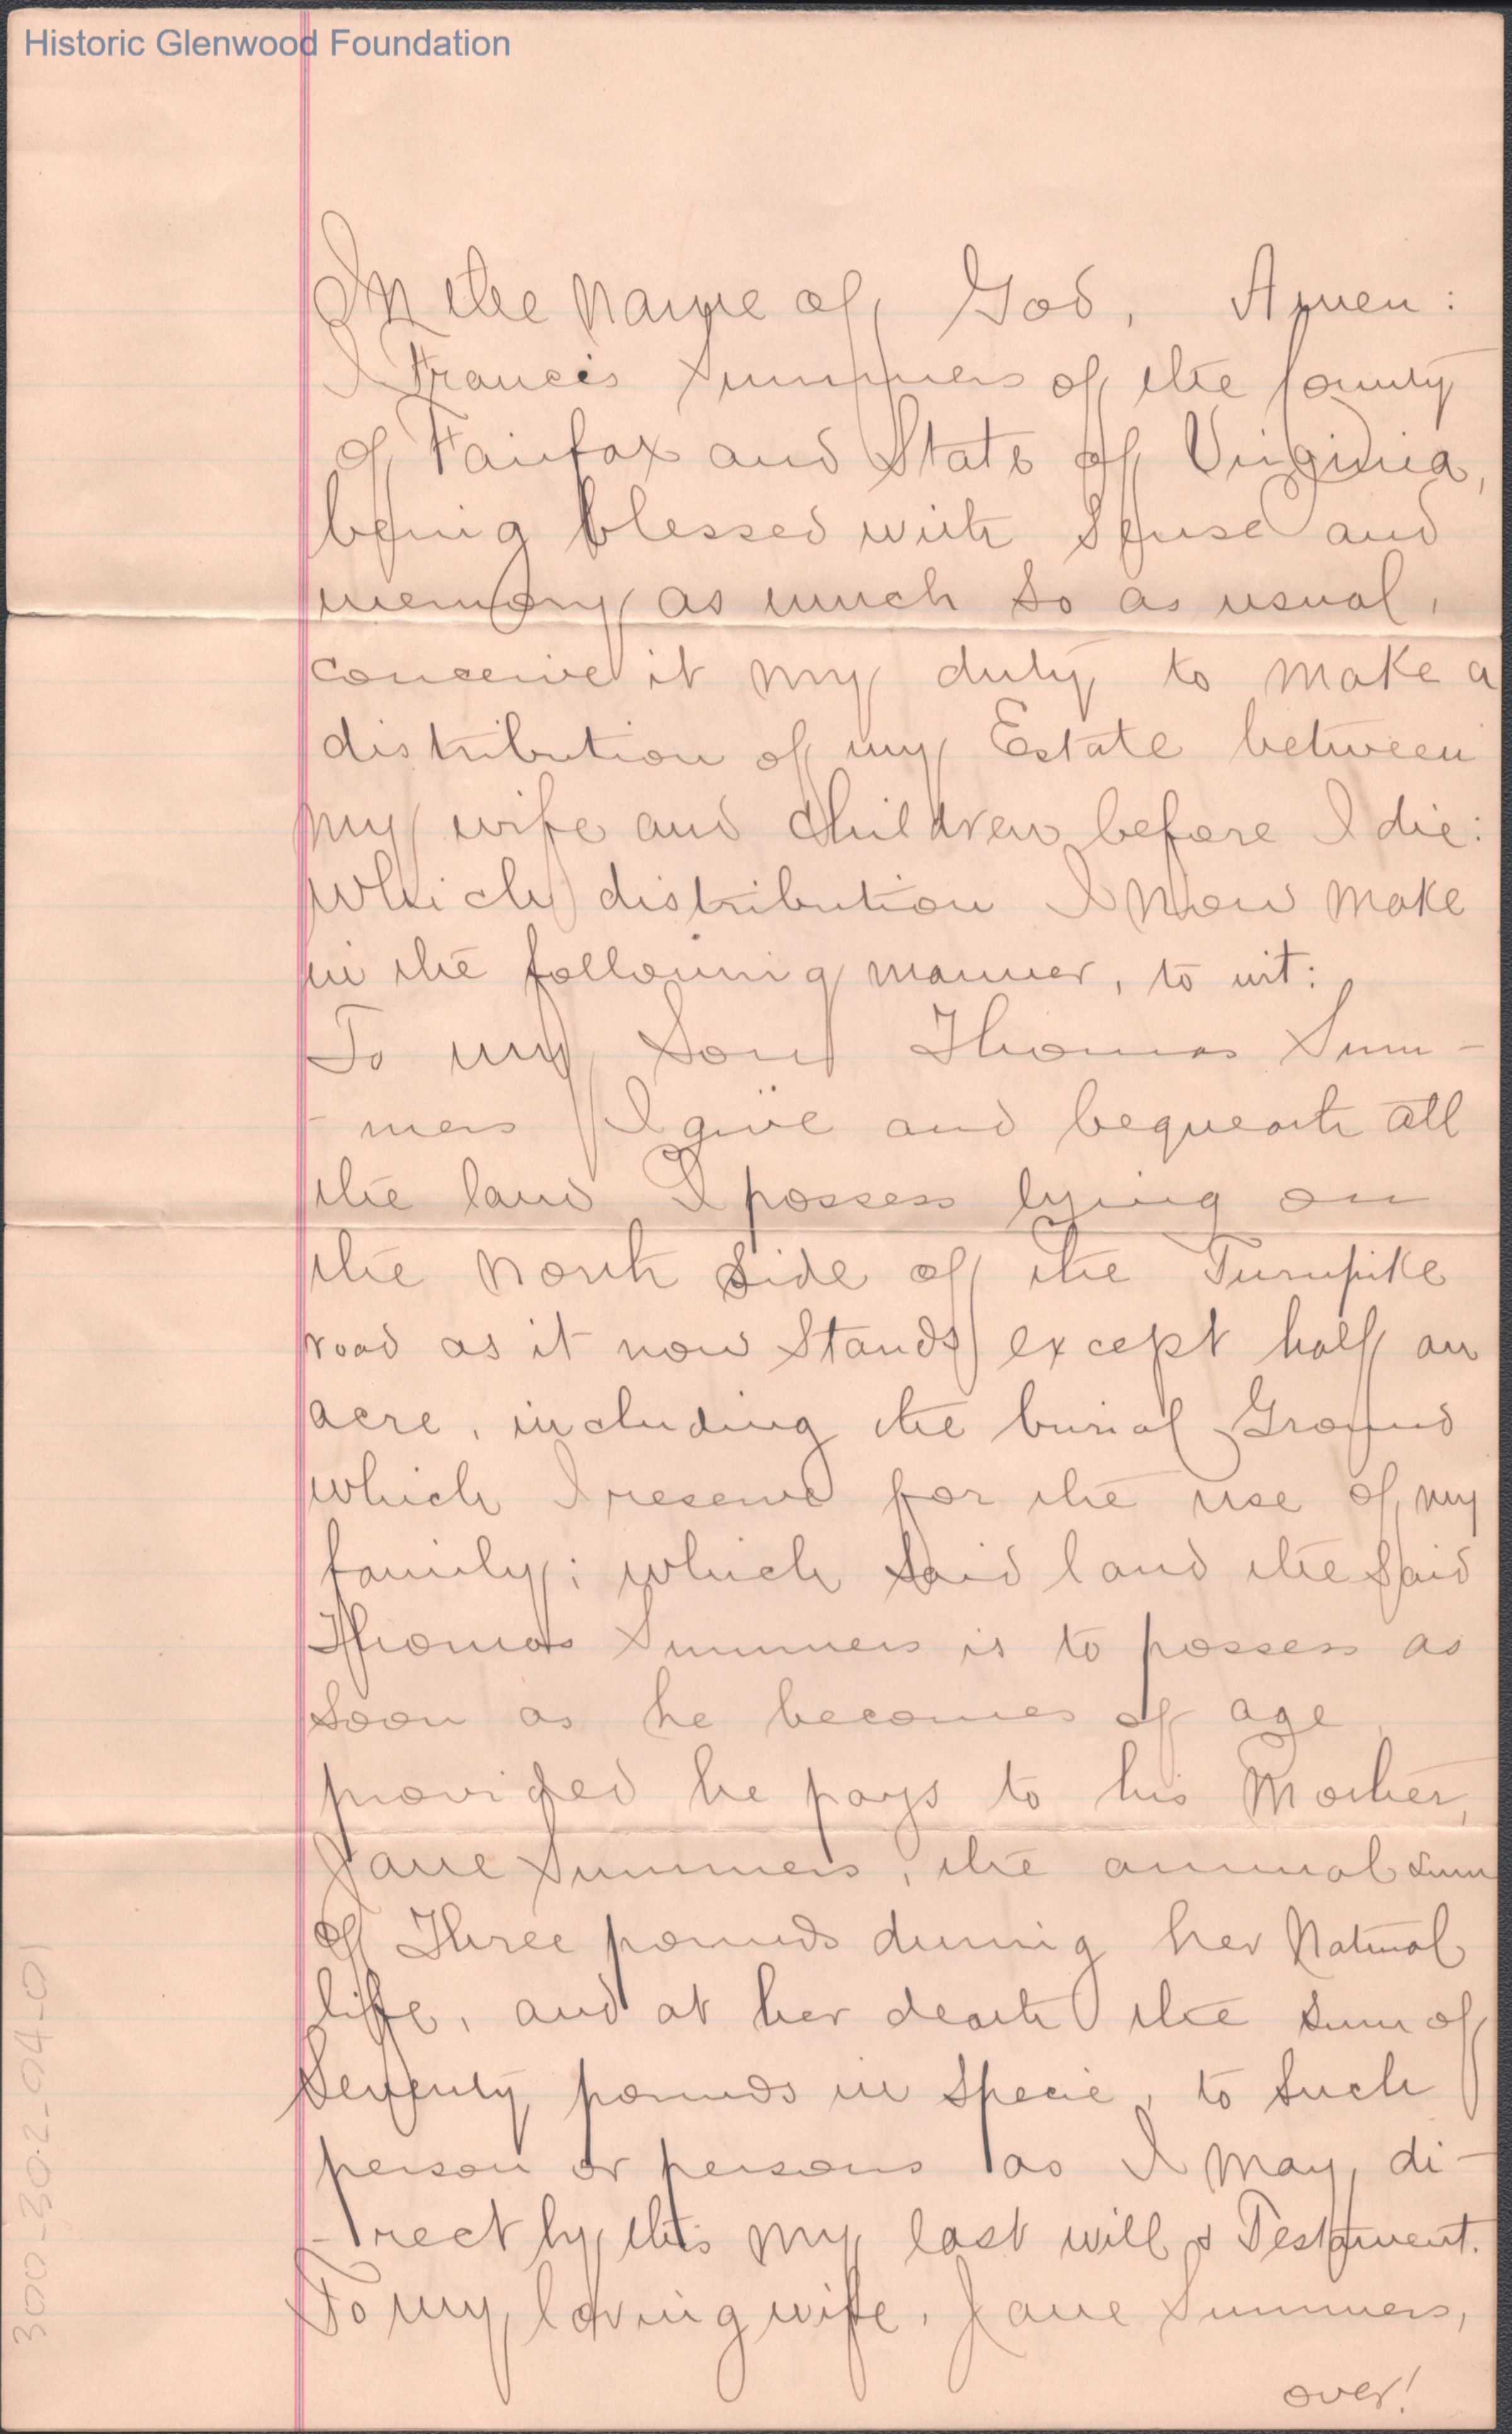 Historic Glenwood Foundation
In the name of God, Amen:
I Francis Summers of the County
of Fairfax and State of Virginia,
being blessed with Sense and
memory as much so as usual,
conceive it my duty to make a
distribution of my Estate between
my wife and Children before I die:
which distribution I now make
in the following manner, to wit:
To my Son Thomas Sum-
-mers I give and bequeath all
the land I possess lying on
the north side of the Turnpike
road as it now Stands except half an
acre, including the burial Ground
which I reserve for the use of my
family; which said land the said
Thomas Summers is to possess as
Soon as he becomes of age
provided he pays to his Mother,
Jane Summers, the annual sum
of Three pounds during her Natural
life, and at her death the sum of
Seventy pounds in Specie, to Such
person or persons as I may di-
-rect by this my last will & Testament.
To my loving wife, Jane Summers,
over!
300-302-04-01